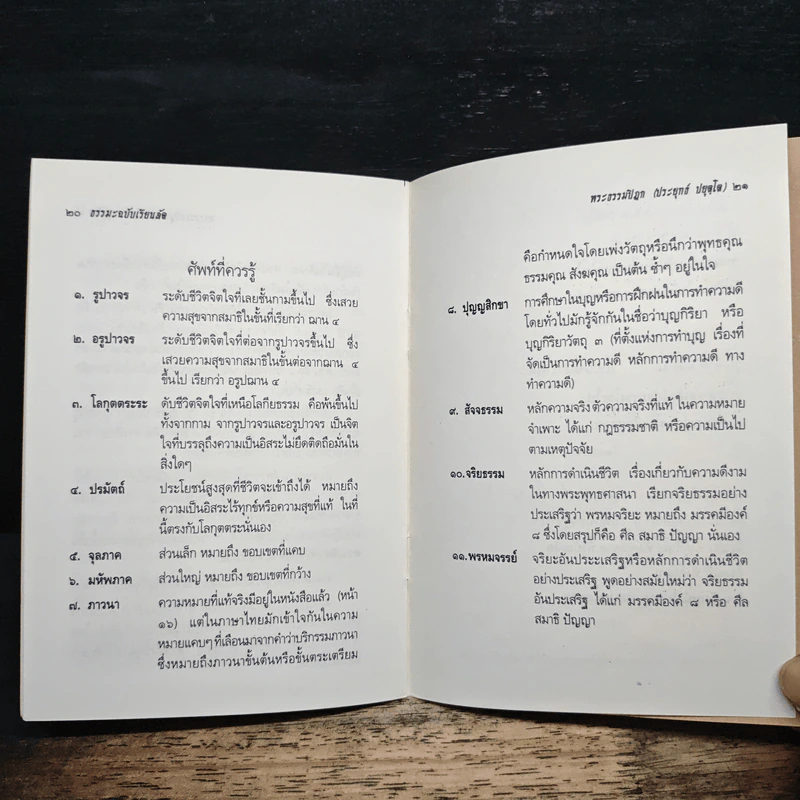 ๒๐ ธรรมะฉบับเรียนลัด
ศัพท์ที่ควรรู้
๑. รูปาวจร ระดับชีวิตจิตใจที่เลยชั้นกามขึ้นไป ซึ่งเสวย
ความสุขจากสมาธิในขั้นที่เรียกว่า ฌาน ๔
๒. อรูปาวจร ระดับชีวิตจิตใจที่ต่อจากรูปาวจรขึ้นไป ซึ่ง
เสวยความสุขจากสมาธิในขั้นต่อจากฌาน ๔
ขึ้นไป เรียกว่า อรูปฌาน ๔
๓. โลกุตตระระ ดับชีวิตจิตใจที่เหนือโลกียธรรม คือพ้นขึ้นไป
ทั้งจากกาม จากรูปาวจรและอรูปาวจร เป็นจิต
ใจที่บรรลุถึงความเป็นอิสระไม่ยึดติดถือมั่นใน
สิ่งใดๆ
๔. ปรมัตถ์ ประโยชน์สูงสุดที่ชีวิตจะเข้าถึงได้ หมายถึง
ความเป็นอิสระไร้ทุกข์หรือความสุขที่แท้ ในที่
นี้ตรงกับโลกุตตระนั่นเอง
๕. จุลภาค ส่วนเล็ก หมายถึง ขอบเขตที่แคบ
๖. มหัพภาค ส่วนใหญ่ หมายถึง ขอบเขตที่กว้าง
๗. ภาวนา ความหมายที่แท้จริงมีอยู่ในหนังสือแล้ว (หน้า
๑๖) แต่ในภาษาไทยมักเข้าใจกันในความ
หมายแคบๆ ที่เลือนมาจากคำว่าบริกรรมภาวนา
ซึ่งหมายถึงภาวนาขั้นต้นหรือขั้นตระเตรียม
พระธรรมปิฎก (ประยุทธ์ ปยุตฺโต) ๒๑
คือกำหนดใจโดยเพ่งวัตถุหรือนึกว่าพุทธคุณ
ธรรมคุณ สังฆคุณ เป็นต้น ซ้ำๆ อยู่ในใจ
๘. ปุญญสิกขา การศึกษาในบุญหรือการฝึกฝนในการทำความดี
โดยทั่วไปมักรู้จักกันในชื่อว่าบุญกิริยา หรือ
บุญกิริยาวัตถุ ๓ (ที่ตั้งแห่งการทำบุญ เรื่องที่
จัดเป็นการทำความดี หลักการทำความดี ทาง
ทำความดี)
๙. สัจจธรรม หลักความจริง ตัวความจริงที่แท้ ในความหมาย
จำเพาะ ได้แก่ กฎธรรมชาติ หรือความเป็นไป
ตามเหตุปัจจัย
๑๐.จริยธรรม หลักการดำเนินชีวิต เรื่องเกี่ยวกับความดีงาม
ในทางพระพุทธศาสนา เรียกจริยธรรมอย่าง
ประเสริฐว่า พรหมจริยะ หมายถึง มรรคมีองค์
๘ ซึ่งโดยสรุปก็คือ ศีล สมาธิ ปัญญา นั่นเอง
๑๑.พรหมจรรย์ จริยะอันประเสริฐหรือหลักการดำเนินชีวิต
อย่างประเสริฐ พูดอย่างสมัยใหม่ว่า จริยธรรม
อันประเสริฐ ได้แก่ มรรคมีองค์ ๘ หรือ ศีล
สมาธิ ปัญญา